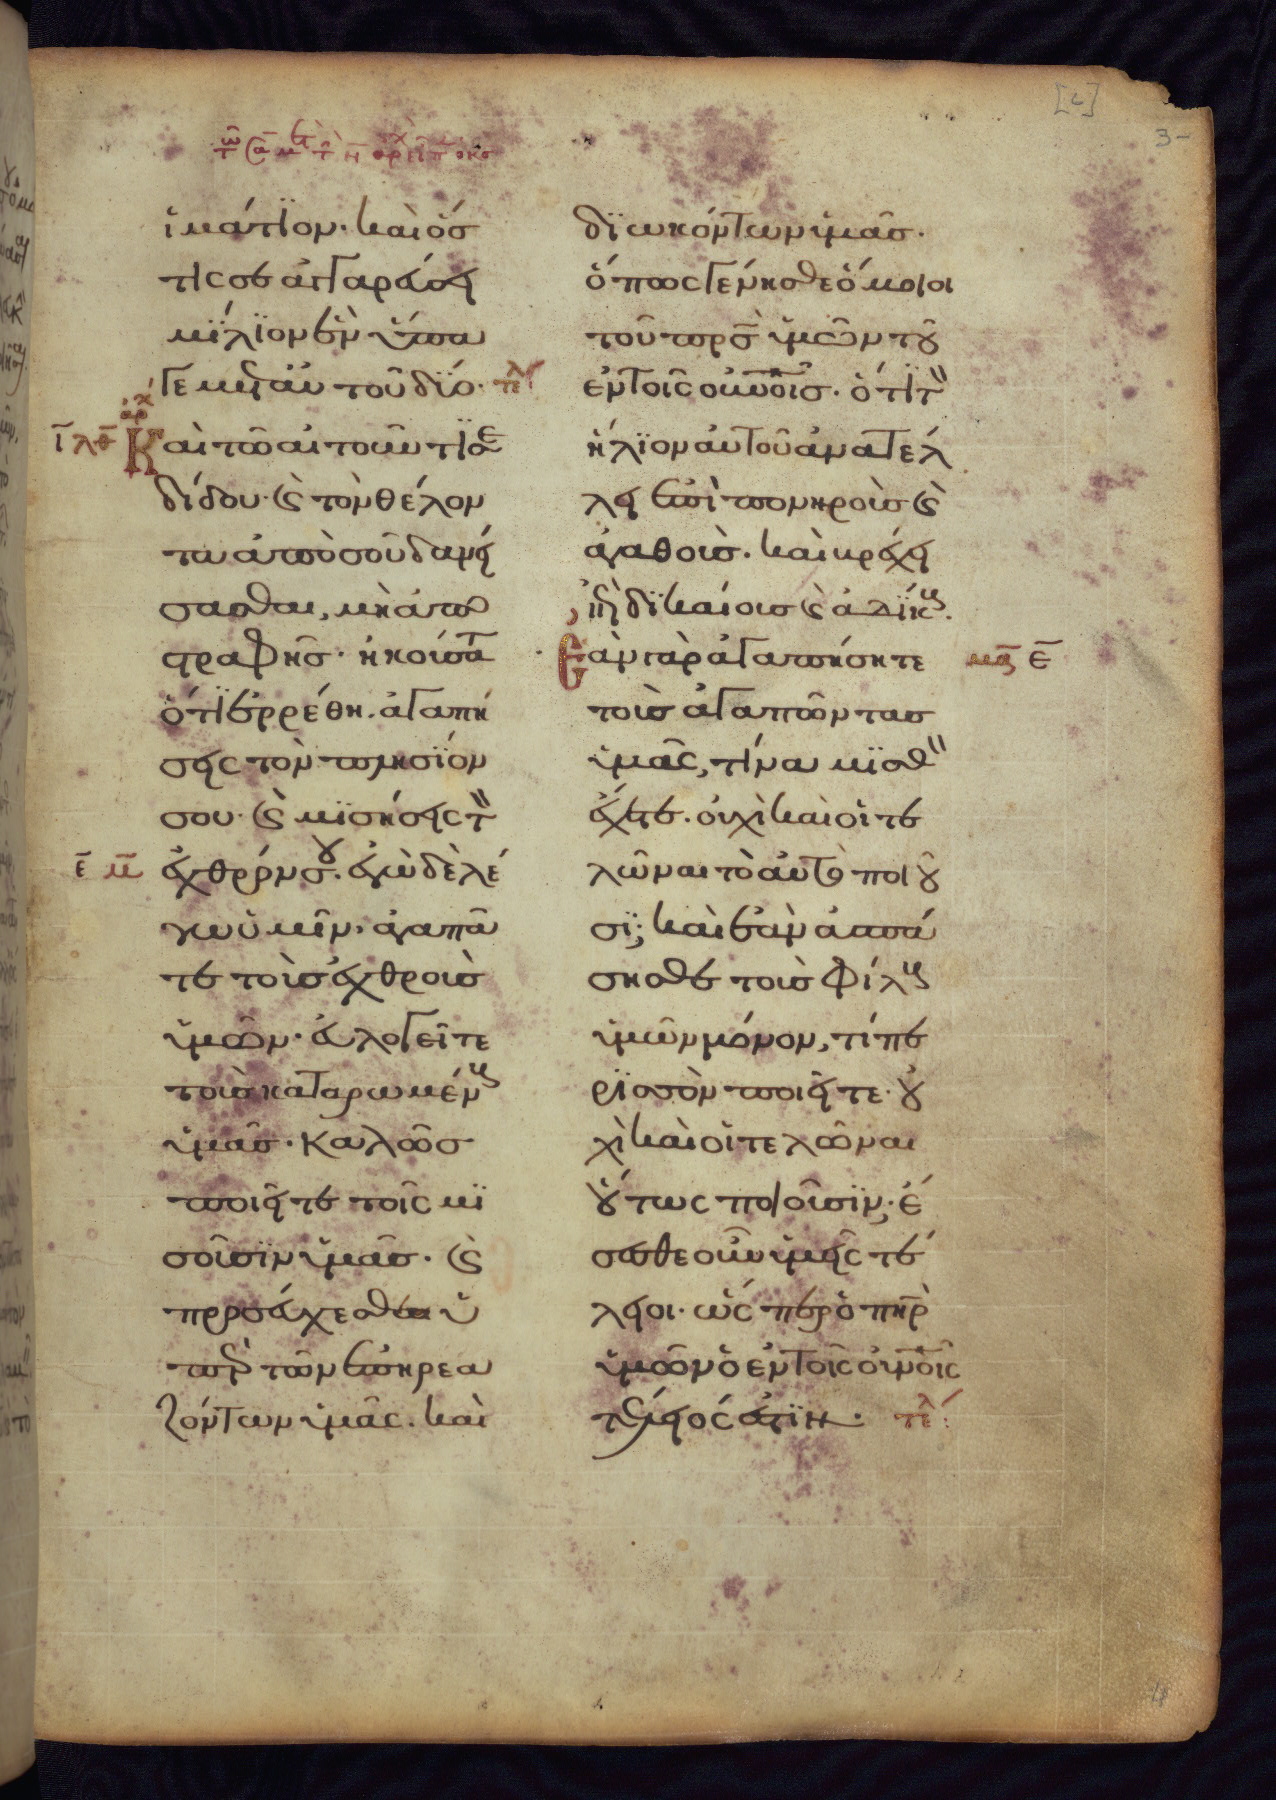 ἱμάτϊον· καὶ ὅσ
τις σε ἀγγαρεύσει
μΐλϊον ἓν ὕπα
γε μετ' αὐτοῦ δύο·
Καὶ τῶ αἰτοῦντί σε
δίδου· κ(αὶ) τὸν θέλον
τα ἀπὸ σοῦ δανεί
σασθαι, μὴ ἀπο
στραφῆς· ἠκούσατε
ὅτϊ ἐρρέθη· ἀγαπή
σεις τὸν πλησΐον
σου· κ(αὶ) μϊσήσεις τὸν
ἐχθρόν σου· ἐγὼ δὲ λέ
γω ὑμῖν· ἀγαπᾶ
τε τοὺς ἐχθροὺς
ὑμῶν· εὐλογεῖτε
τοὺς καταρωμένους
ὑμᾶς· καλῶς
ποιεῖτε τοῖς μϊ
σοῦσϊν ὑμᾶς· κ(αὶ)
προσεύχεσθαι ὑ
πὲρ τῶν ἐπηρεα
ζόντων ὑμᾶς· καὶ
δϊωκόντων ὑμᾶς·
ὅπως γένησθε ὅμοιοι
τοῦ πρς ὑμῶν τοῦ
ἐν τοῖς οὐνοῖς· ὅτϊ τὸν
ἥλϊον αὐτοῦ ἀνατέλ
λει ἐπὶ πονηροὺς κ(αὶ)
ἀγαθοὺς· καὶ βρέχει
ἐπὶ δϊκαίους κ(αὶ) ἀδίκους·
Ἐὰν γὰρ ἀγαπήσητε
τοὺς ἀγαπῶντας
ὑμᾶς, τίνα μϊσθὸν
ἔχετε· οὐχὶ καὶ οἱ τε
λῶναι τὸ αὐτὸ ποιοῦ
σϊ; καὶ ἐὰν ἀσπά
σησθε τοὺς φίλους
ὑμῶν μόνον, τί πε
ρϊσσὸν ποιεῖτε· οὐ
χὶ καὶ οἱ τελῶναι
οὕτως ποιοῦσϊν· ἔ
σεσθε οὖν ὑμεῖς τέ
λειοι· ὡς περ ὁ πηρ
ὑμῶν ὁ ἐν τοῖς οὐνοῖς
τέλειός ἐστϊν·